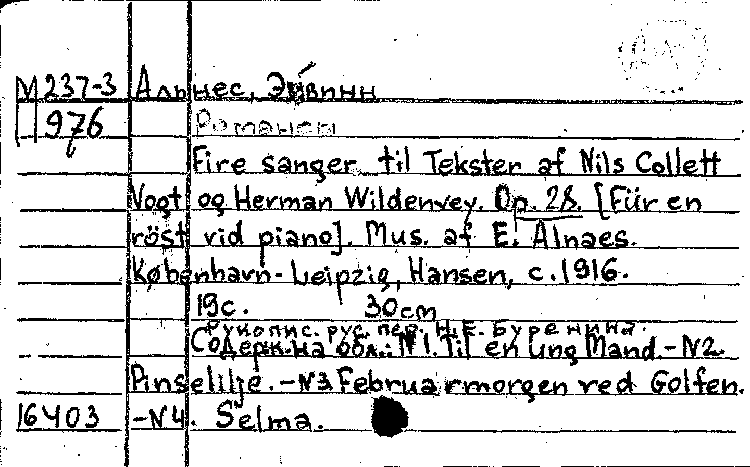 М 237-3 Альнес, Эйвинн
976 Романсы
Fire sanger til Tekster af Nils Collett
Vogt og Herman Wildenvey. Op. 28. [Für en
röst vid piano]. Mus. af E. Alnaes.
København-Leipzig, Hansen, c.1916.
19c. 30cm
Рукопис. рус. пер. Н.Е. Буренина.
Содерж. на обл.: N1. Til en ung Mand.-N2.
Pinselilje.-N3 Februarmorgen ved Golfen.
16403 -N4. Selma.